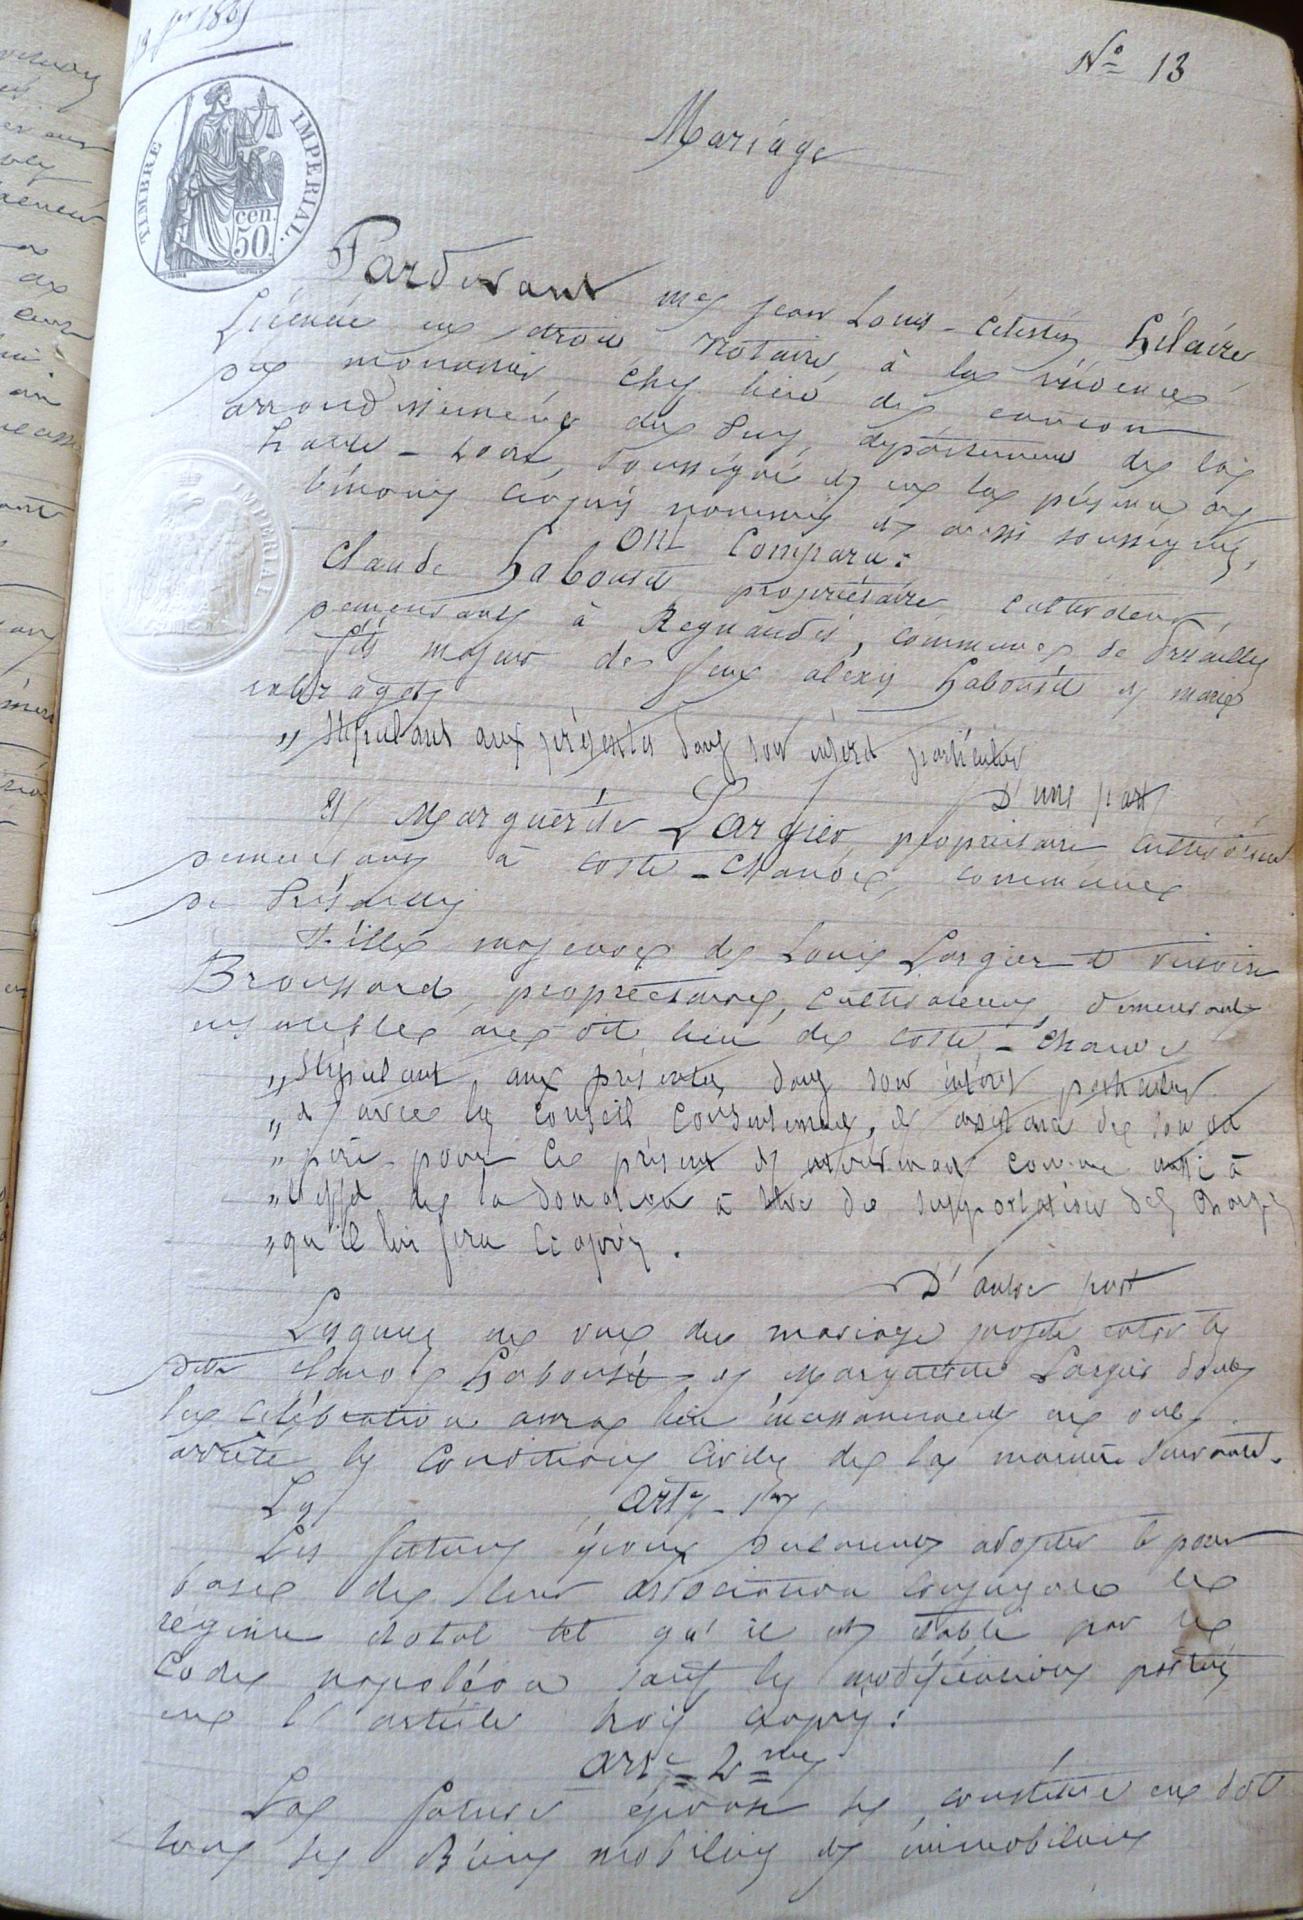 13 jer 1865
N° 13
Mariage
TIMBRE IMPERIAL.
cen.
50.
Pardevant me Jean Louis-Célestin Hilaire
Licencié en droit Notaire, à la résidence
de monastier, chef lieu de canton
arrondissement du Puy, département de la
haute-Loire, soussigné et en la présence des
témoins ciaprès nommés et aussi soussignés,
Ont Comparu:
IMPERIAL
Claude Laboust propriétaire cultivateur,
demeurant à Regnaudés, commune de
fils majeur de feux alexis Laboust et marie
" Stipulant aux présentes dans son intérêt particulier
D'une part
Et Marguerite Largier, propriétaire, cultivateur
demeurant à Coste-Chaude, commune
de
Fille majeure de Louis Largier et
Broussard, propriétaires, cultivateurs, demeurant
ensemble au dit lieu de Coste-Chaude
" Stipulant, aux présentes dans son intérêt particulier
" et avec le conseil consentement, et assistance de son dit
" père pour ce présent et intervenant comme aussi à
" l'effet de la donation à titre de supportation des charges
" qu'il lui fera ci après.
D'autre part
Lesquels en vue du mariage projeté entre les
dits Claude Laboust et Marguerite Largier dont
la célébration aura lieu incessamment en ont
arrêté les conditions civiles de la manière suivante.
Art. 1er
Les futurs époux déclarent adopter pour
base de leur association conjugale le
régime dotal tel qu'il est établi par le
Code napoléon sauf les modifications portées
en l'article trois ciaprès:
Art. 2me
La future épouse se constitue en dot
tous ses Biens mobiliers et immobiliers